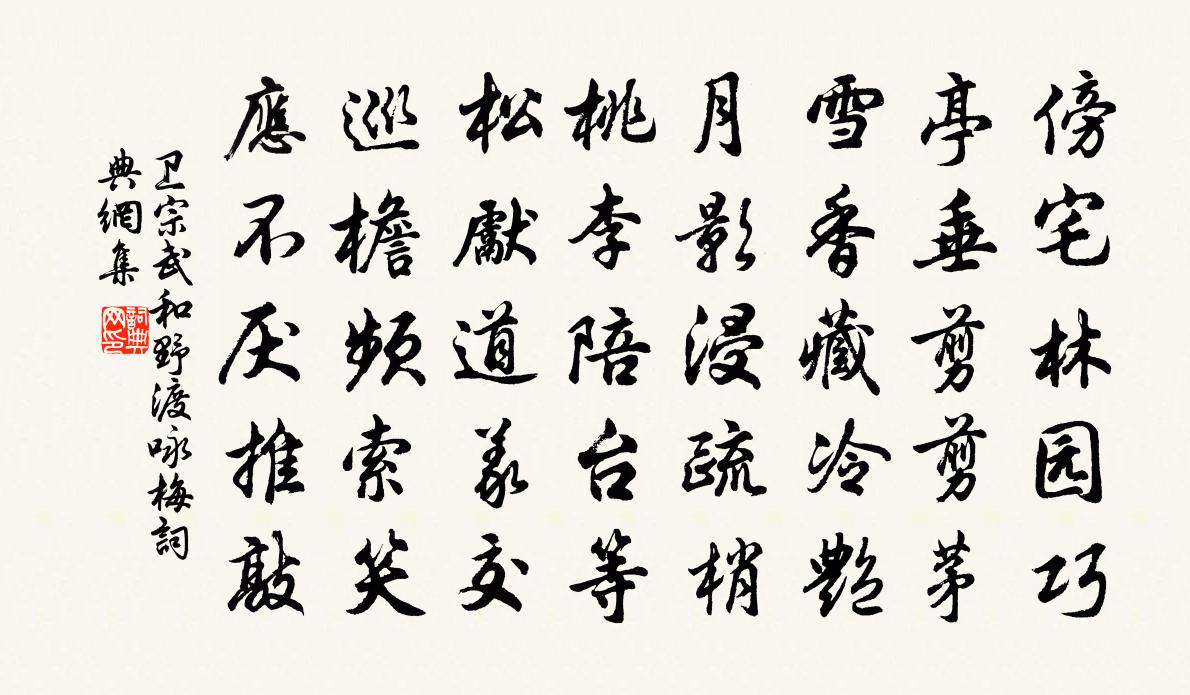 傍宅林园巧
亭垂剪剪茅
雪香藏冷艷
月影浸疏梢
桃李陪台等
松獻道义交
巡檐频索笑
應不厌推敲
卫宗武和野渡咏梅詞
典網集
詞典网印